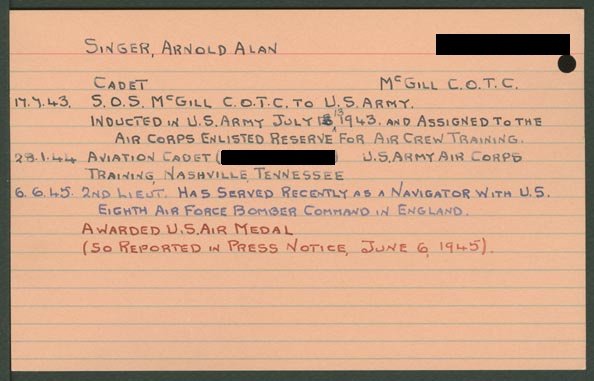 SINGER, ARNOLD ALAN
CADET McGILL C.O.T.C.
17.7.43. S.O.S. McGILL C.O.T.C. TO U.S. ARMY.
INDUCTED IN U.S. ARMY JULY 13 1943. AND ASSIGNED TO THE
AIR CORPS ENLISTED RESERVE FOR AIR CREW TRAINING.
28.1.44 AVIATION CADET ( ) U.S. ARMY AIR CORPS
TRAINING, NASHVILLE, TENNESSEE
6.6.45. 2ND LIEUT. HAS SERVED RECENTLY AS A NAVIGATOR WITH U.S.
EIGHTH AIR FORCE BOMBER COMMAND IN ENGLAND.
AWARDED U.S. AIR MEDAL
(SO REPORTED IN PRESS NOTICE, JUNE 6, 1945).